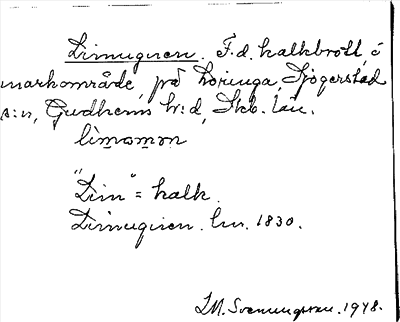 Limugnen. F.d. kalkbrott, å
markområde, på Loringa, Sjogerstad
s:n, Gudhems h:d, Skb. län.
"Lim" = kalk.
Limugnen. lm. 1830.
I.M. Svenungsson. 1948.